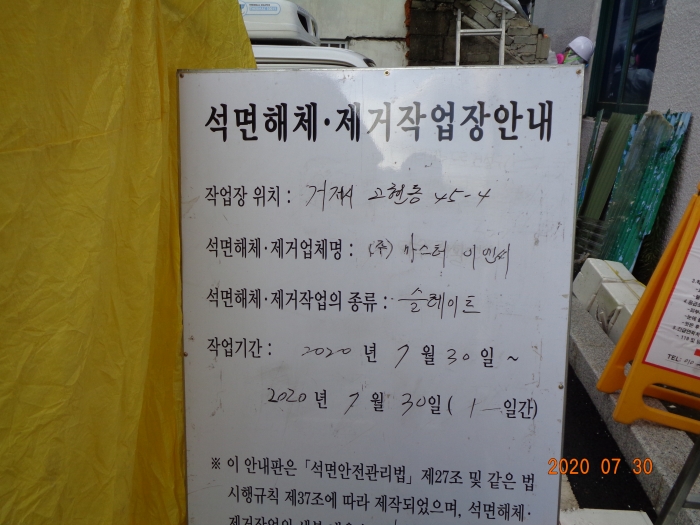 석면해체·제거작업장안내
작업장 위치 : 거제시 고현동 45-4
석면해체·제거업체명 : (주) 마스터 이엔씨
석면해체·제거작업의 종류 : 슬레이트
작업기간 : 2020 년 7 월 30 일 ~
2020 년 7 월 30일 ( 1 일간)
※ 이 안내판은 「석면안전관리법」 제27조 및 같은 법
시행규칙 제37조에 따라 제작되었으며, 석면해체·
TEL:
2020 07 30